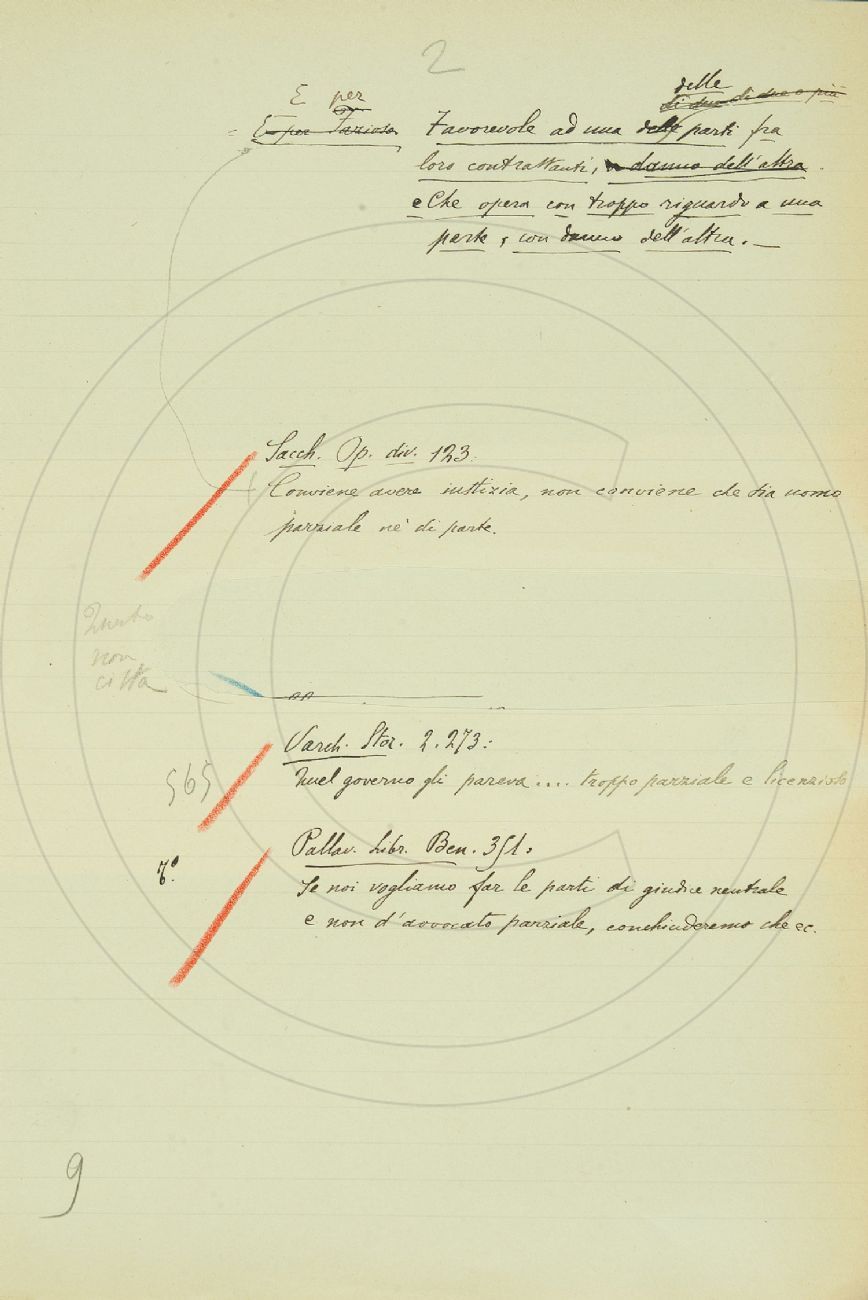 2
E per
delle
di due di due o più
= E per Fazioso Favorevole ad una delle parti fra
loro contrattanti, a danno dell'altra.
e Che opera con troppo riguardo a una
parte, con danno dell'altra. —
Sacch. Op. div. 123.
Conviene avere iustizia, non conviene che sia uomo
parziale nè di parte.
Questo
non
città
Varch. Stor. 2. 273:
Quel governo gli pareva .... troppo parziale e licenzioso
565
Pallav. Libr. Ben. 351:
Se noi vogliamo far le parti di giudice neutrale
e non d'avvocato parziale, conchiuderemo che ec.
9